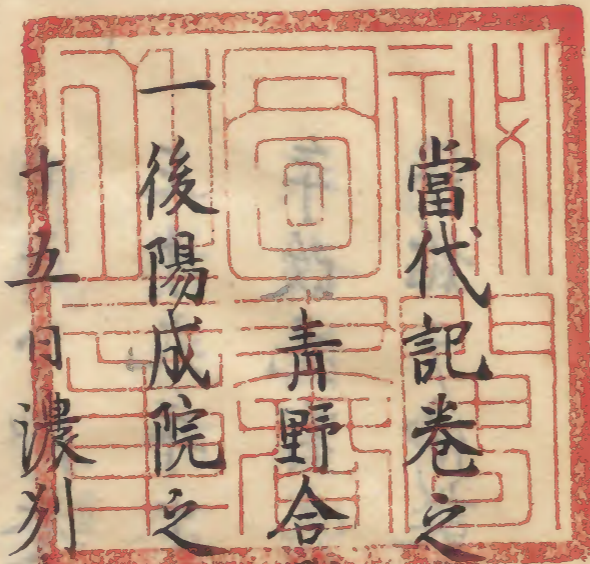 當代記卷之
青野合
一後陽成院之
十五日濃刕